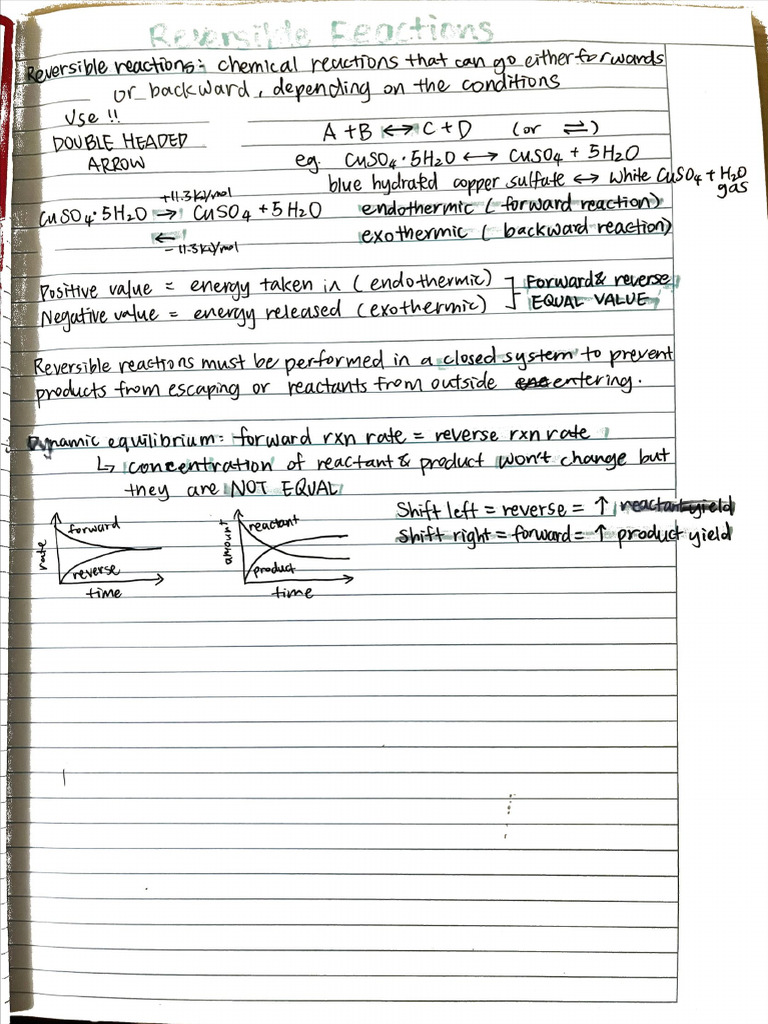 Reversible Reactions
Reversible reactions: chemical reactions that can go either forwards
or backward, depending on the conditions
Use !!
DOUBLE HEADED
ARROW
A + B ↔ C + D (or ⇌)
eg. CuSO₄·5H₂O ↔ CuSO₄ + 5H₂O
blue hydrated copper sulfate ↔ white CuSO₄ + H₂O
gas
+11.3KJ/mol
CuSO₄·5H₂O → CuSO₄ + 5H₂O endothermic (forward reaction)
← exothermic (backward reaction)
-11.3KJ/mol
Positive value = energy taken in (endothermic) ] Forward & reverse
Negative value = energy released (exothermic) EQUAL VALUE
Reversible reactions must be performed in a closed system to prevent
products from escaping or reactants from outside entering.
Dynamic equilibrium: forward rxn rate = reverse rxn rate
↳ concentration of reactant & product won't change but
they are NOT EQUAL
Shift left = reverse = ↑ reactant yield
Shift right = forward = ↑ product yield
forward
rate
reverse
time
reactant
amount
product
time